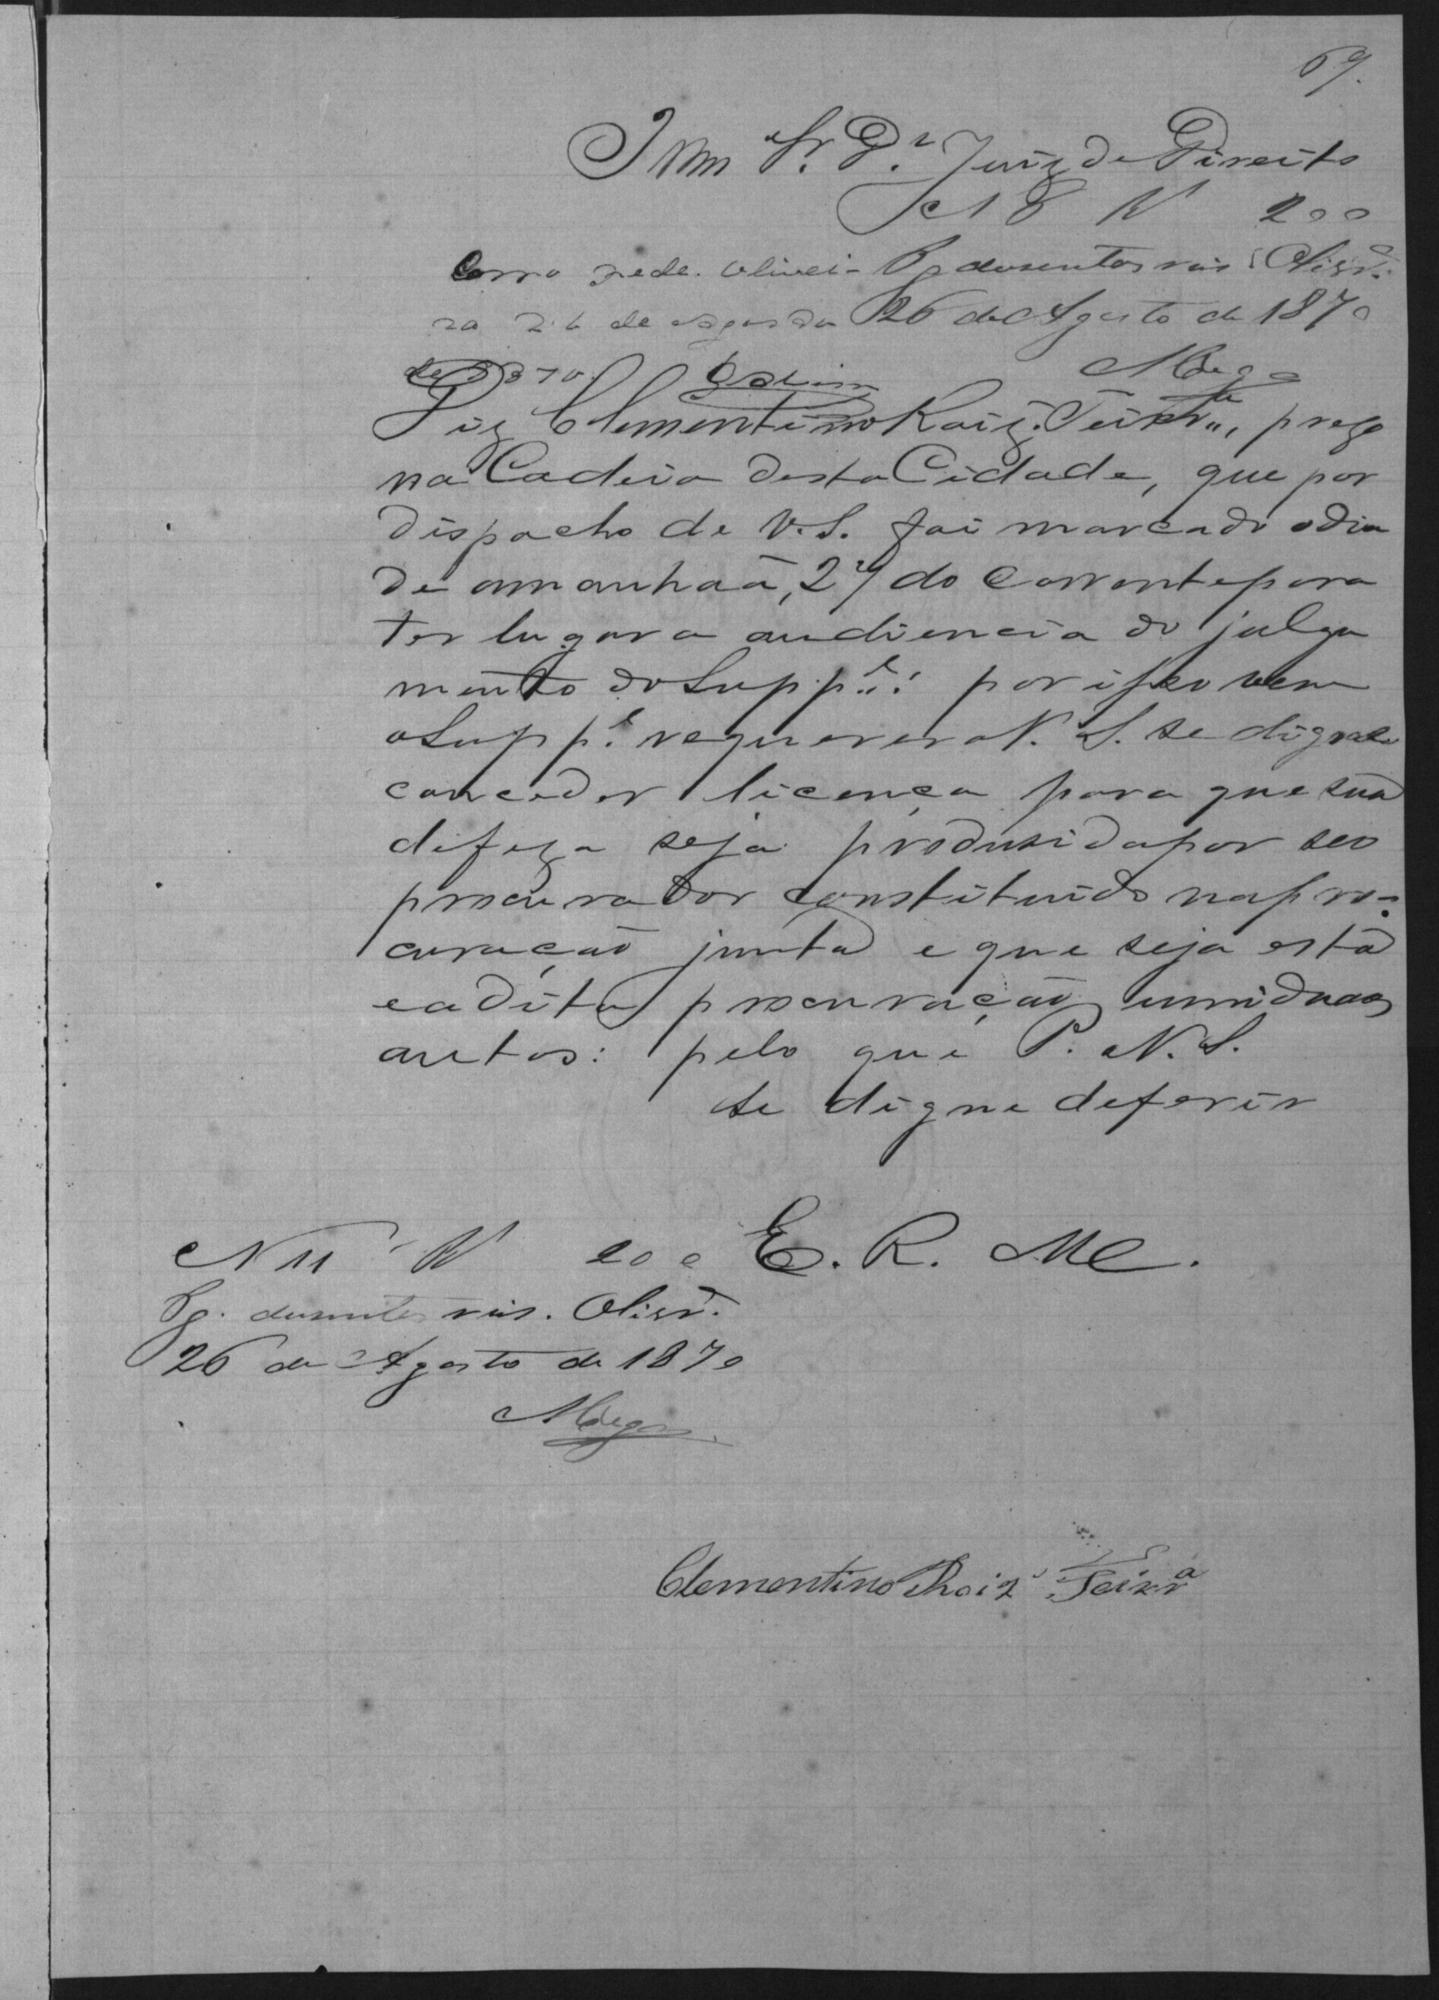 69.
Illm Sr. Dr. Juiz de Direito
N 8 R 200
Pg dusentos reis Olivrª.
26 de Agosto de 1870
Como pede. Olivei-
ra 26 de agosto
de 1870.
Diz Clementino Roiz. Teixrª, prezo
na Cadeia desta Cidade, que por
dispacho de V. S. foi marcado o dia
de amanhaã, 27 do Corrente para
ter lugar a audiencia do julga
mento do Suppe.: por isso vem
o Suppe. requerer a V. S. se digne
conceder licença para que sua
difeza seja produsida por seo
procurador constituido na pro-
curação junta e que seja esta
e a dita procuração unida aos
autos: pelo que P. V. S.
se digne deferir
E. R. Mce.
N 11 R 200
Pg. dusentos reis. Olivrª.
26 de Agosto de 1870
Clementino Roiz Teixrª